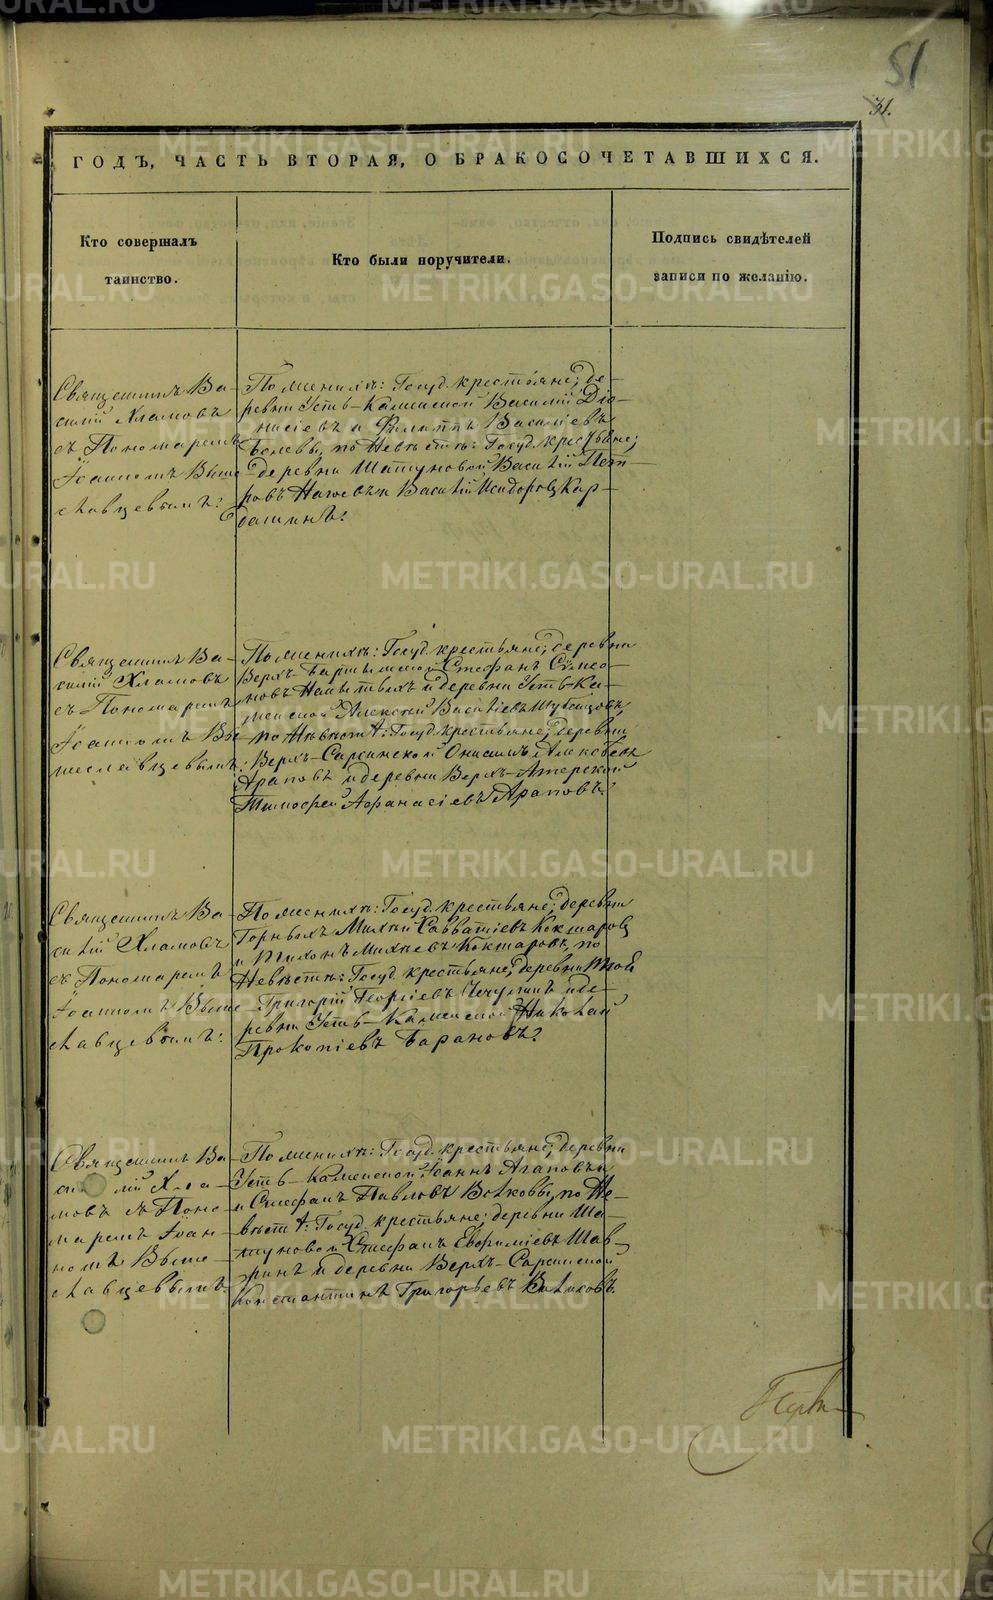 51
31.
ГОДЪ, ЧАСТЬ ВТОРАЯ, О БРАКОСОЧЕТАВШИХСЯ.
Кто совершалъ
таинство.
Кто были поручители.
Подпись свидѣтелей
записи по желанію.
Священникъ Ва-
силій Хламовъ
съ Пономаремъ
Іоанномъ Выше
славцевымъ:
По женихѣ: Госуд. крестьяне; де-
ревни Усть-Каменской Василій Діо-
нисіевъ и Филиппъ Васильевъ
по Невѣстѣ: Госуд. крестьяне;
деревни Шатуновой Василій Пет-
ровъ и Василій Исидоровъ Кар-
башинъ:
Священникъ Ва-
силій Хламовъ
съ Пономаремъ
Іоанномъ Вы-
шеславцевымъ:
По женихѣ: Госуд. крестьяне; деревни
Верхъ- Стефанъ Симео-
новъ и деревни Усть-Ка-
менской Алексѣй Васильевъ
по Невѣстѣ: Госуд. крестьяне; деревни
Верхъ-Сарсинской Онисимъ
Араповъ и деревни Верхъ-Атерской
Тимофей Афанасіевъ Араповъ.
Священникъ Ва-
силій Хламовъ
съ Пономаремъ
Іоанномъ Выше
славцевымъ:
По женихѣ: Госуд. крестьяне; деревни
Горныхъ Михѣй Савватіевъ Кокшаровъ
и Тихонъ Михѣевъ Кокшаровъ, по
Невѣстѣ: Госуд. крестьяне; деревни той
Григорій Георгіевъ и де-
ревни Усть-Каменской Николай
Прокопіевъ Барановъ:
Священникъ Ва-
силій Хла-
мовъ съ Поно-
маремъ Іоан-
номъ Выше-
славцевымъ:
По женихѣ: Госуд. крестьяне; деревни
Усть-Каменской Іоаннъ Агаповъ
и Стефанъ Павловъ Волковы, по Не-
вѣстѣ: Госуд. крестьяне; деревни Ша-
туновой Стефанъ Евфиміевъ Шав-
ринъ и деревни Верхъ-Сарсинской
Константинъ Григорьевъ
METRIKI.GASO-URAL.RU